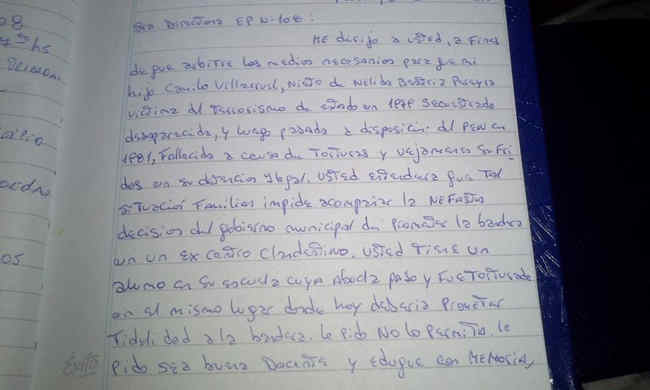 08
hs
Sra Directora EP N-108:
Me dirijo a usted, a fines
de que arbitre los medios necesarios para que mi
hijo Camilo Villarruel, Nieto de Nelida Beatriz
victima del Terrorismo de estado en 1979 secuestrada
desaparecida, y luego pasada a disposicion del PEN en
1981, Fallecida a causa de Torturas y vejamenes sufri
dos en su detencion Ilegal. Usted entendera que Tal
situación Familiar impide acompañar la NEFASTA
decision del gobierno municipal de Prometer la bandera
en un Ex centro Clandestino. Usted Tiene un
alumno en su escuela cuya Abuela paso y Fue Torturada
en el mismo lugar donde hoy deberia Prometer
Fidelidad a la bandera. le Pido No lo Permita, le
Pido sea buena Docente y eduque con MEMORIA,
05
Exito